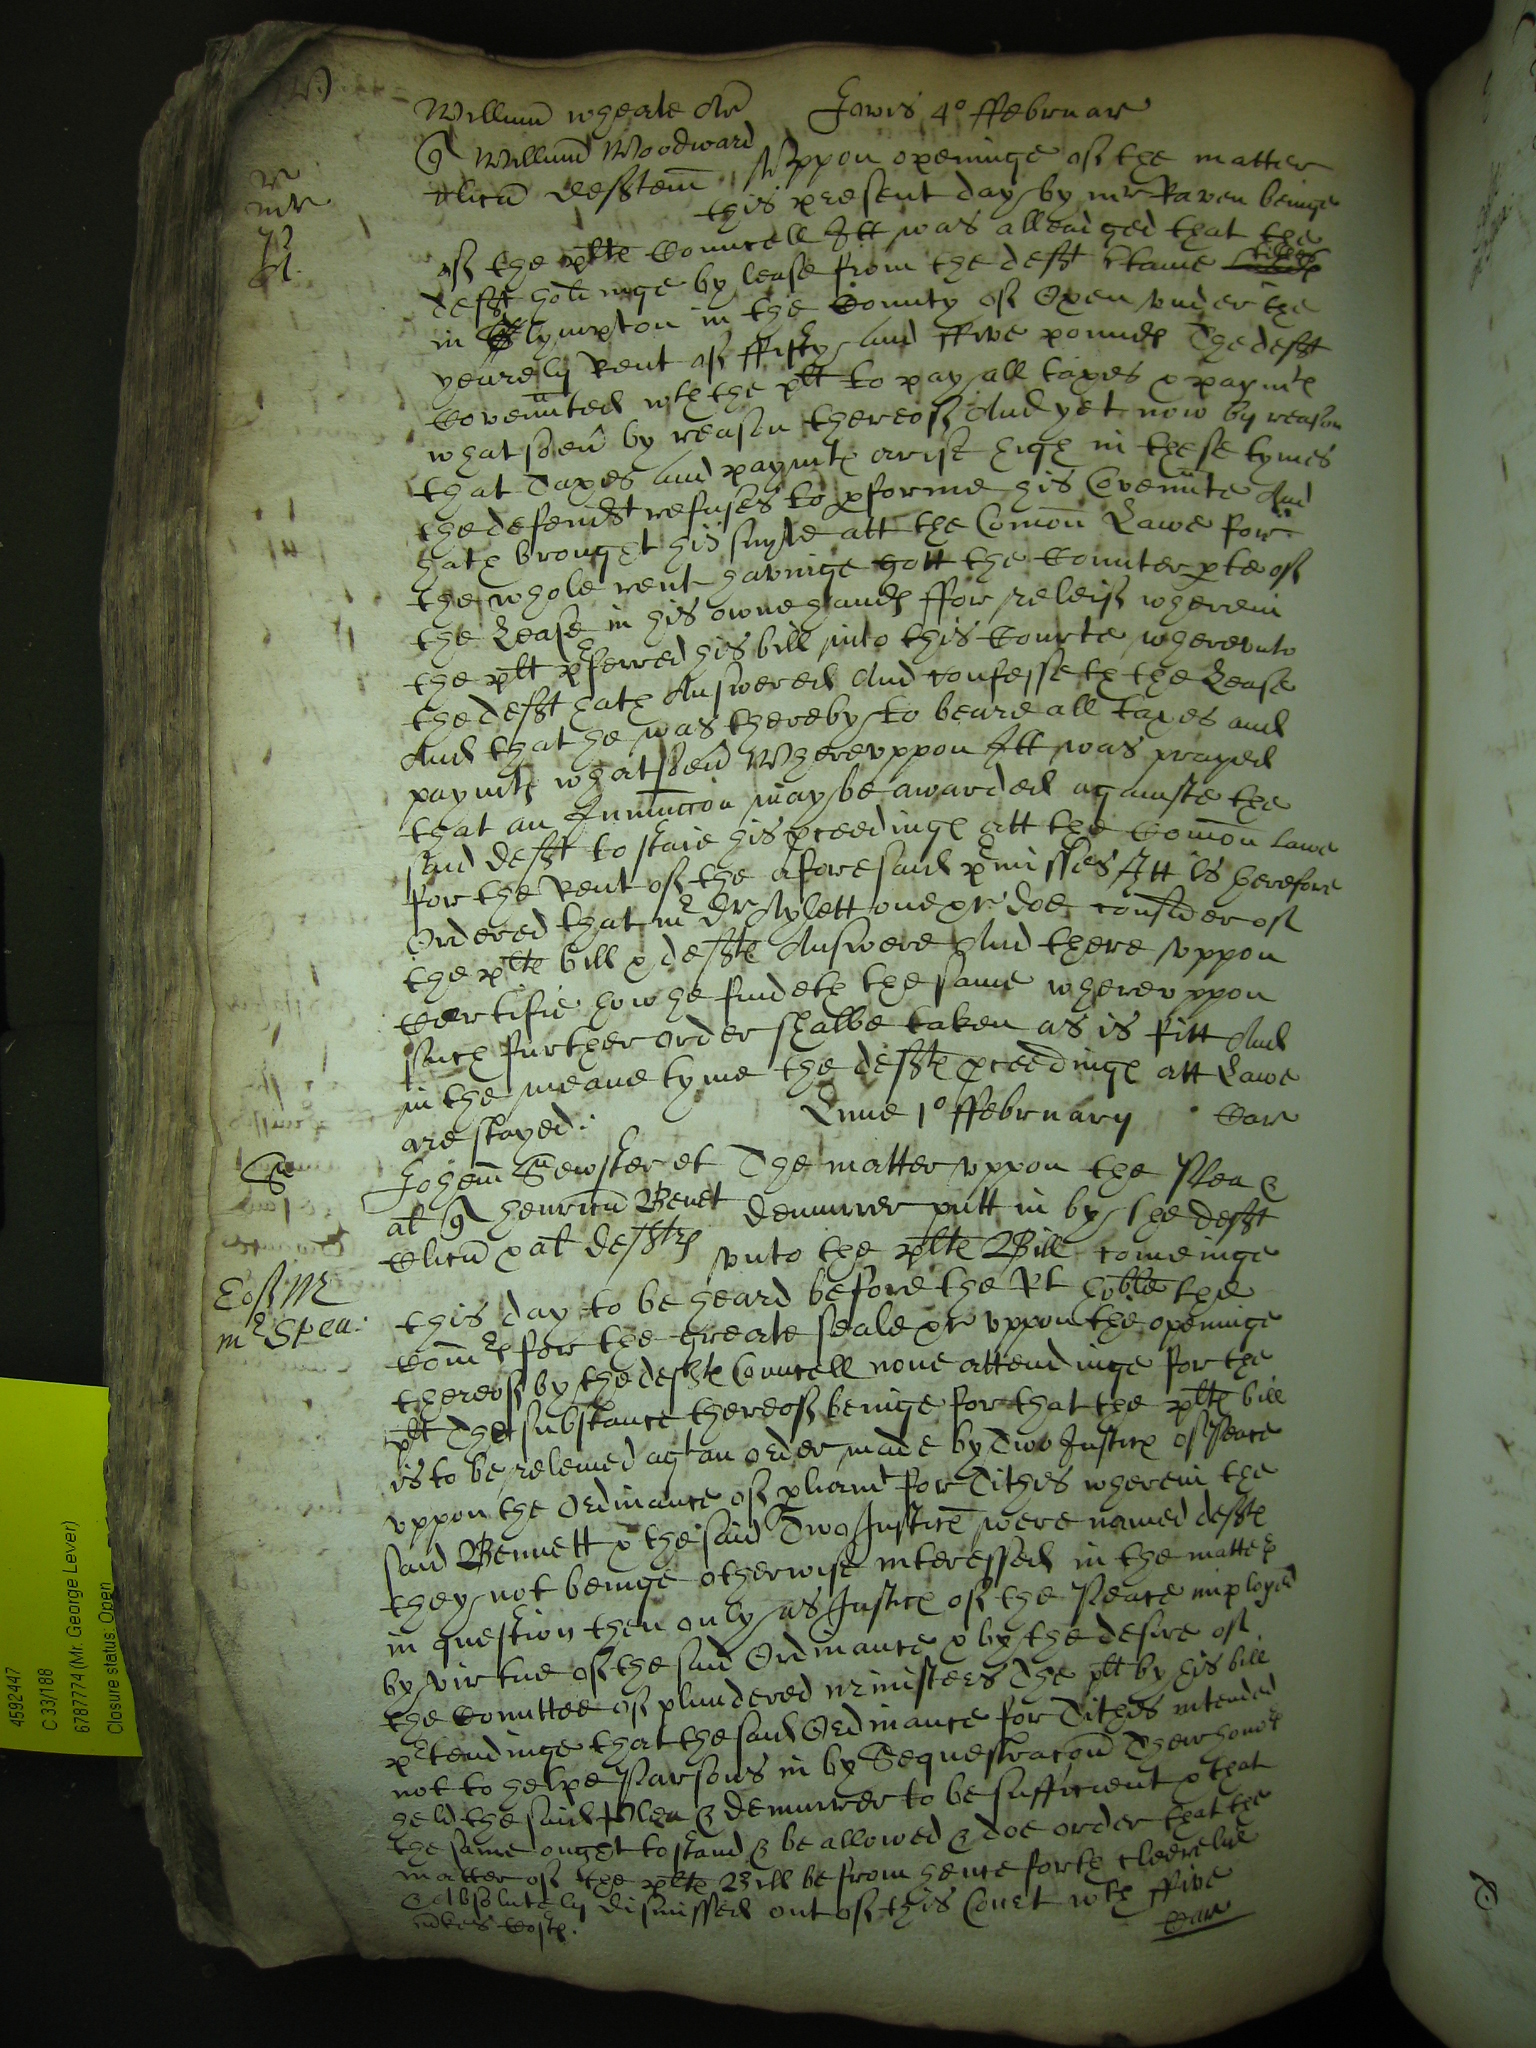 Willum wheate Ar Jovis 4º ffebruar
Con Willum Woodward
Clicu defftem Uppon openinge of the matter
this present day by mr Raven beinge
of the pltes Councell Itt was alleadged that the
defft holdinge by lease from the defft Cttaine tithes
in Glympton in the County of Oxen under the
yearely Rent of ffifty and ffive pounds The defft
Covennted wth the plt to pay all taxes & paymts
whatsoeu by reason thereof And yet now by reason
that Taxes and paymts arise high in these tymes
the defendt refuses to pforme his Covennte And
hath brought his suyte att the Comon Lawe for
the whole rent havinge gott the Counterpte of
the Lease in his owne hands ffor releif wherein
the plt pferred his bill into this Courte whereunto
the defft hath Answered And confesseth the Lease
And that he was thereby to beare all taxes and
paymts whatsoeu Whereuppon Itt was prayed
that an Iniunccon may be awarded againste the
said defft to staie his pceedings att the Comon Lawe
for the Rent of the aforesaid pmisses Itt is therefore
Ordered that mr Dr Aylett one &c doe consider of
the pltes bill & deffts Answere And there uppon
Certifie how he findeth the same whereuppon
such further order shalbe taken as is fitt And
in the meane tyme the deffts pceedings att Lawe
are stayed. Lune 1º ffebruary Car
Johem Sewster et The matter uppon the Plea &
al Con henricu Benet Demurrer putt in by the defft
Clicu & al defftes unto the pltes Bill comeinge
this day to be heard before the Rt hoble the
Comrs for the greate seale &c uppon the openinge
thereof by the deffts Councell none attendinge for the
plt The substance thereof beinge for that the pltes bill
is to be releived agt an order made by Two Justics of Peace
uppon the Ordinance of pliamt for Tithes wherein the
said Bennett & the said Two Justics were named deffts
they not beinge otherwise interessed in the matters
in question then only as Justics of the Peace imployed
by virtue of the said Ordinance & by the desire of
the Comittee of plundered ministers The plt by his bill
ptendinge that the said Ordinance for Tithes intended
not to helpe Parsons in by Sequestracon Their honors
held the said Plea & demurrer to be sufficient & that
the same ought to stand & be allowed & doe order that the
matter of the pltes Bill be from hence forth cleerelie
& absolutely dismissed out of this Court wth ffive
mkes Costs. Car
Mr Spea:
4592447
C 33/188
6787774 (Mr. George Lever)
Closure status: Open